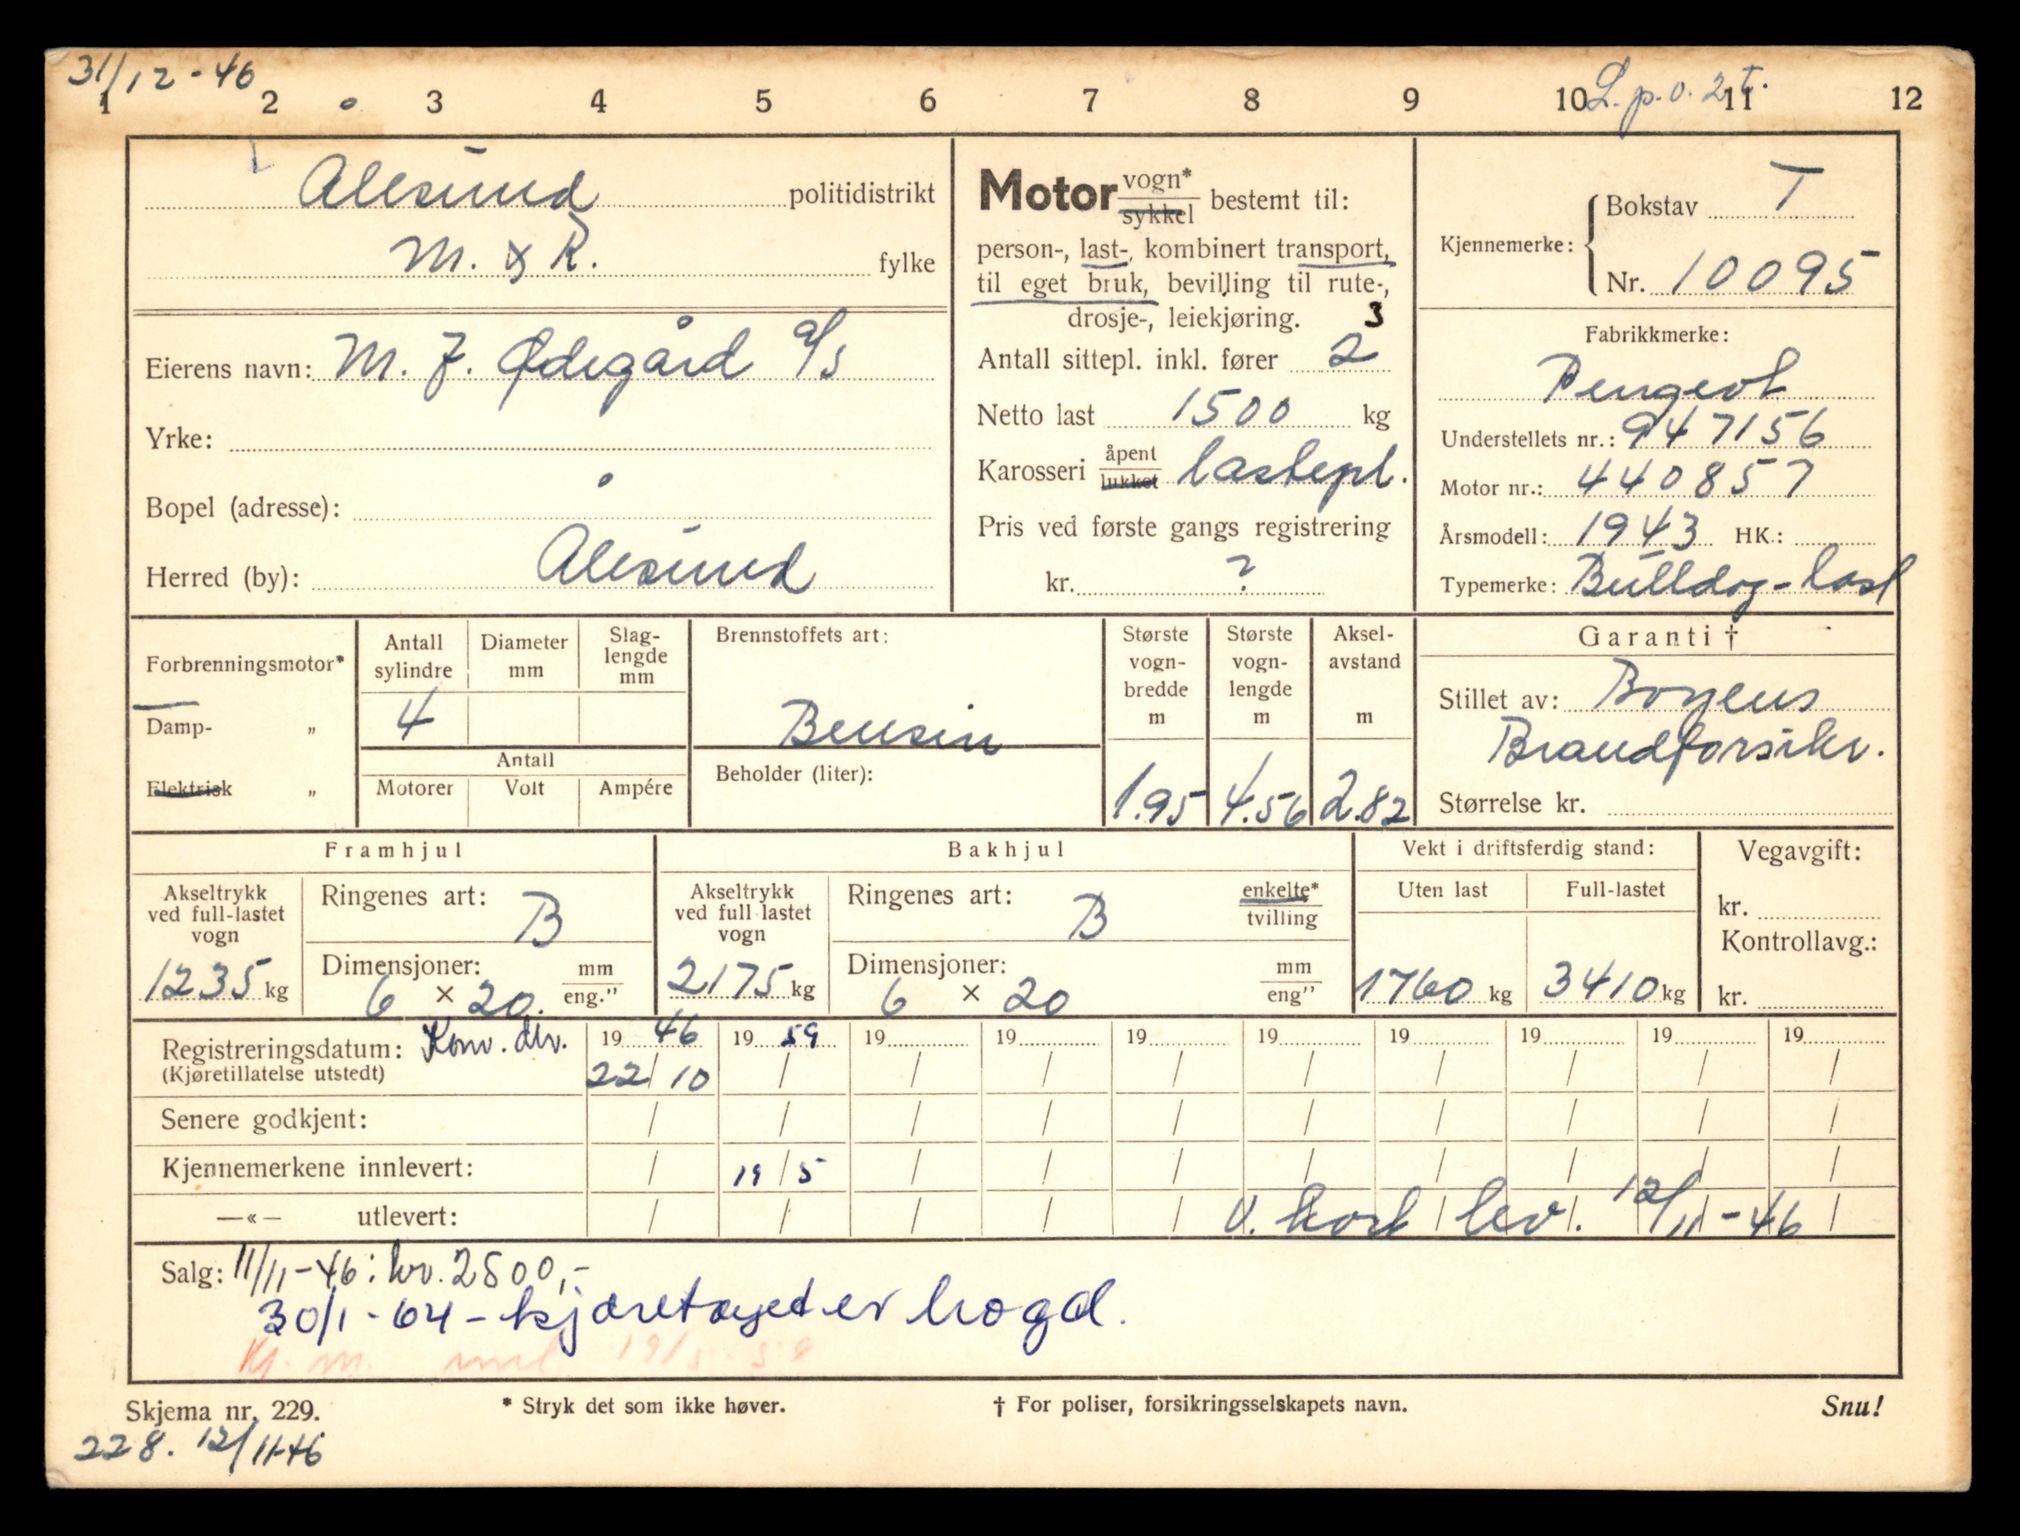 31/12-46
L. p. o. 2 t.
1 2 3 4 5 6 7 8 9 10 11 12
Ålesund politidistrikt
M. & R. fylke
Eierens navn: M. J. Ødegård a/s
Yrke:
Bopel (adresse):
Herred (by): Ålesund
Motor vogn* / sykkel bestemt til:
person-, last-, kombinert transport,
til eget bruk, bevilling til rute-,
drosje-, leiekjøring. 3
Antall sittepl. inkl. fører 2
Netto last 1500 kg
Karosseri åpent / lukket lastepl.
Pris ved første gangs registrering
kr. ?
Kjennemerke: Bokstav T
Nr. 10095
Fabrikkmerke:
Peugeot
Understellets nr.: 947156
Motor nr.: 440857
Årsmodell: 1943 HK.:
Typemerke: Bulldog-last
Forbrenningsmotor*
Damp- „
Elektrisk „
Antall sylindre
4
Diameter mm
Slag-lengde mm
Antall
Motorer Volt Ampére
Brennstoffets art:
Bensin
Beholder (liter):
Største vogn-bredde m
1.95
Største vogn-lengde m
4.56
Aksel-avstand m
2.82
Garanti †
Stillet av: Boyens
Brandforsikr.
Størrelse kr.
Framhjul
Akseltrykk ved full-lastet vogn
1235 kg
Ringenes art: B
Dimensjoner: mm / eng."
6 × 20.
Bakhjul
Akseltrykk ved full lastet vogn
2175 kg
Ringenes art: B enkelte* / tvilling
Dimensjoner: mm / eng"
6 × 20
Vekt i driftsferdig stand:
Uten last Full-lastet
1760 kg 3410 kg
Vegavgift:
kr.
Kontrollavg.:
kr.
Registreringsdatum: Konv. div. 19 46 19 59 19 19 19 19 19 19 19 19
(Kjøretillatelse utstedt) 22/10 / / / / / / / / /
Senere godkjent: / / / / / / / / / /
Kjennemerkene innlevert: / 19/5 / / / / / / / /
—«— utlevert: / / / / / / / / / /
V. kort lev. 12/11-46
Salg: 11/11-46: kr. 2500,-
30/1-64 - kjøretøyet er hogd.
Kj. m. innl. 19/5-59
Skjema nr. 229.
* Stryk det som ikke høver.
† For poliser, forsikringsselskapets navn.
Snu!
228. 12/11-46